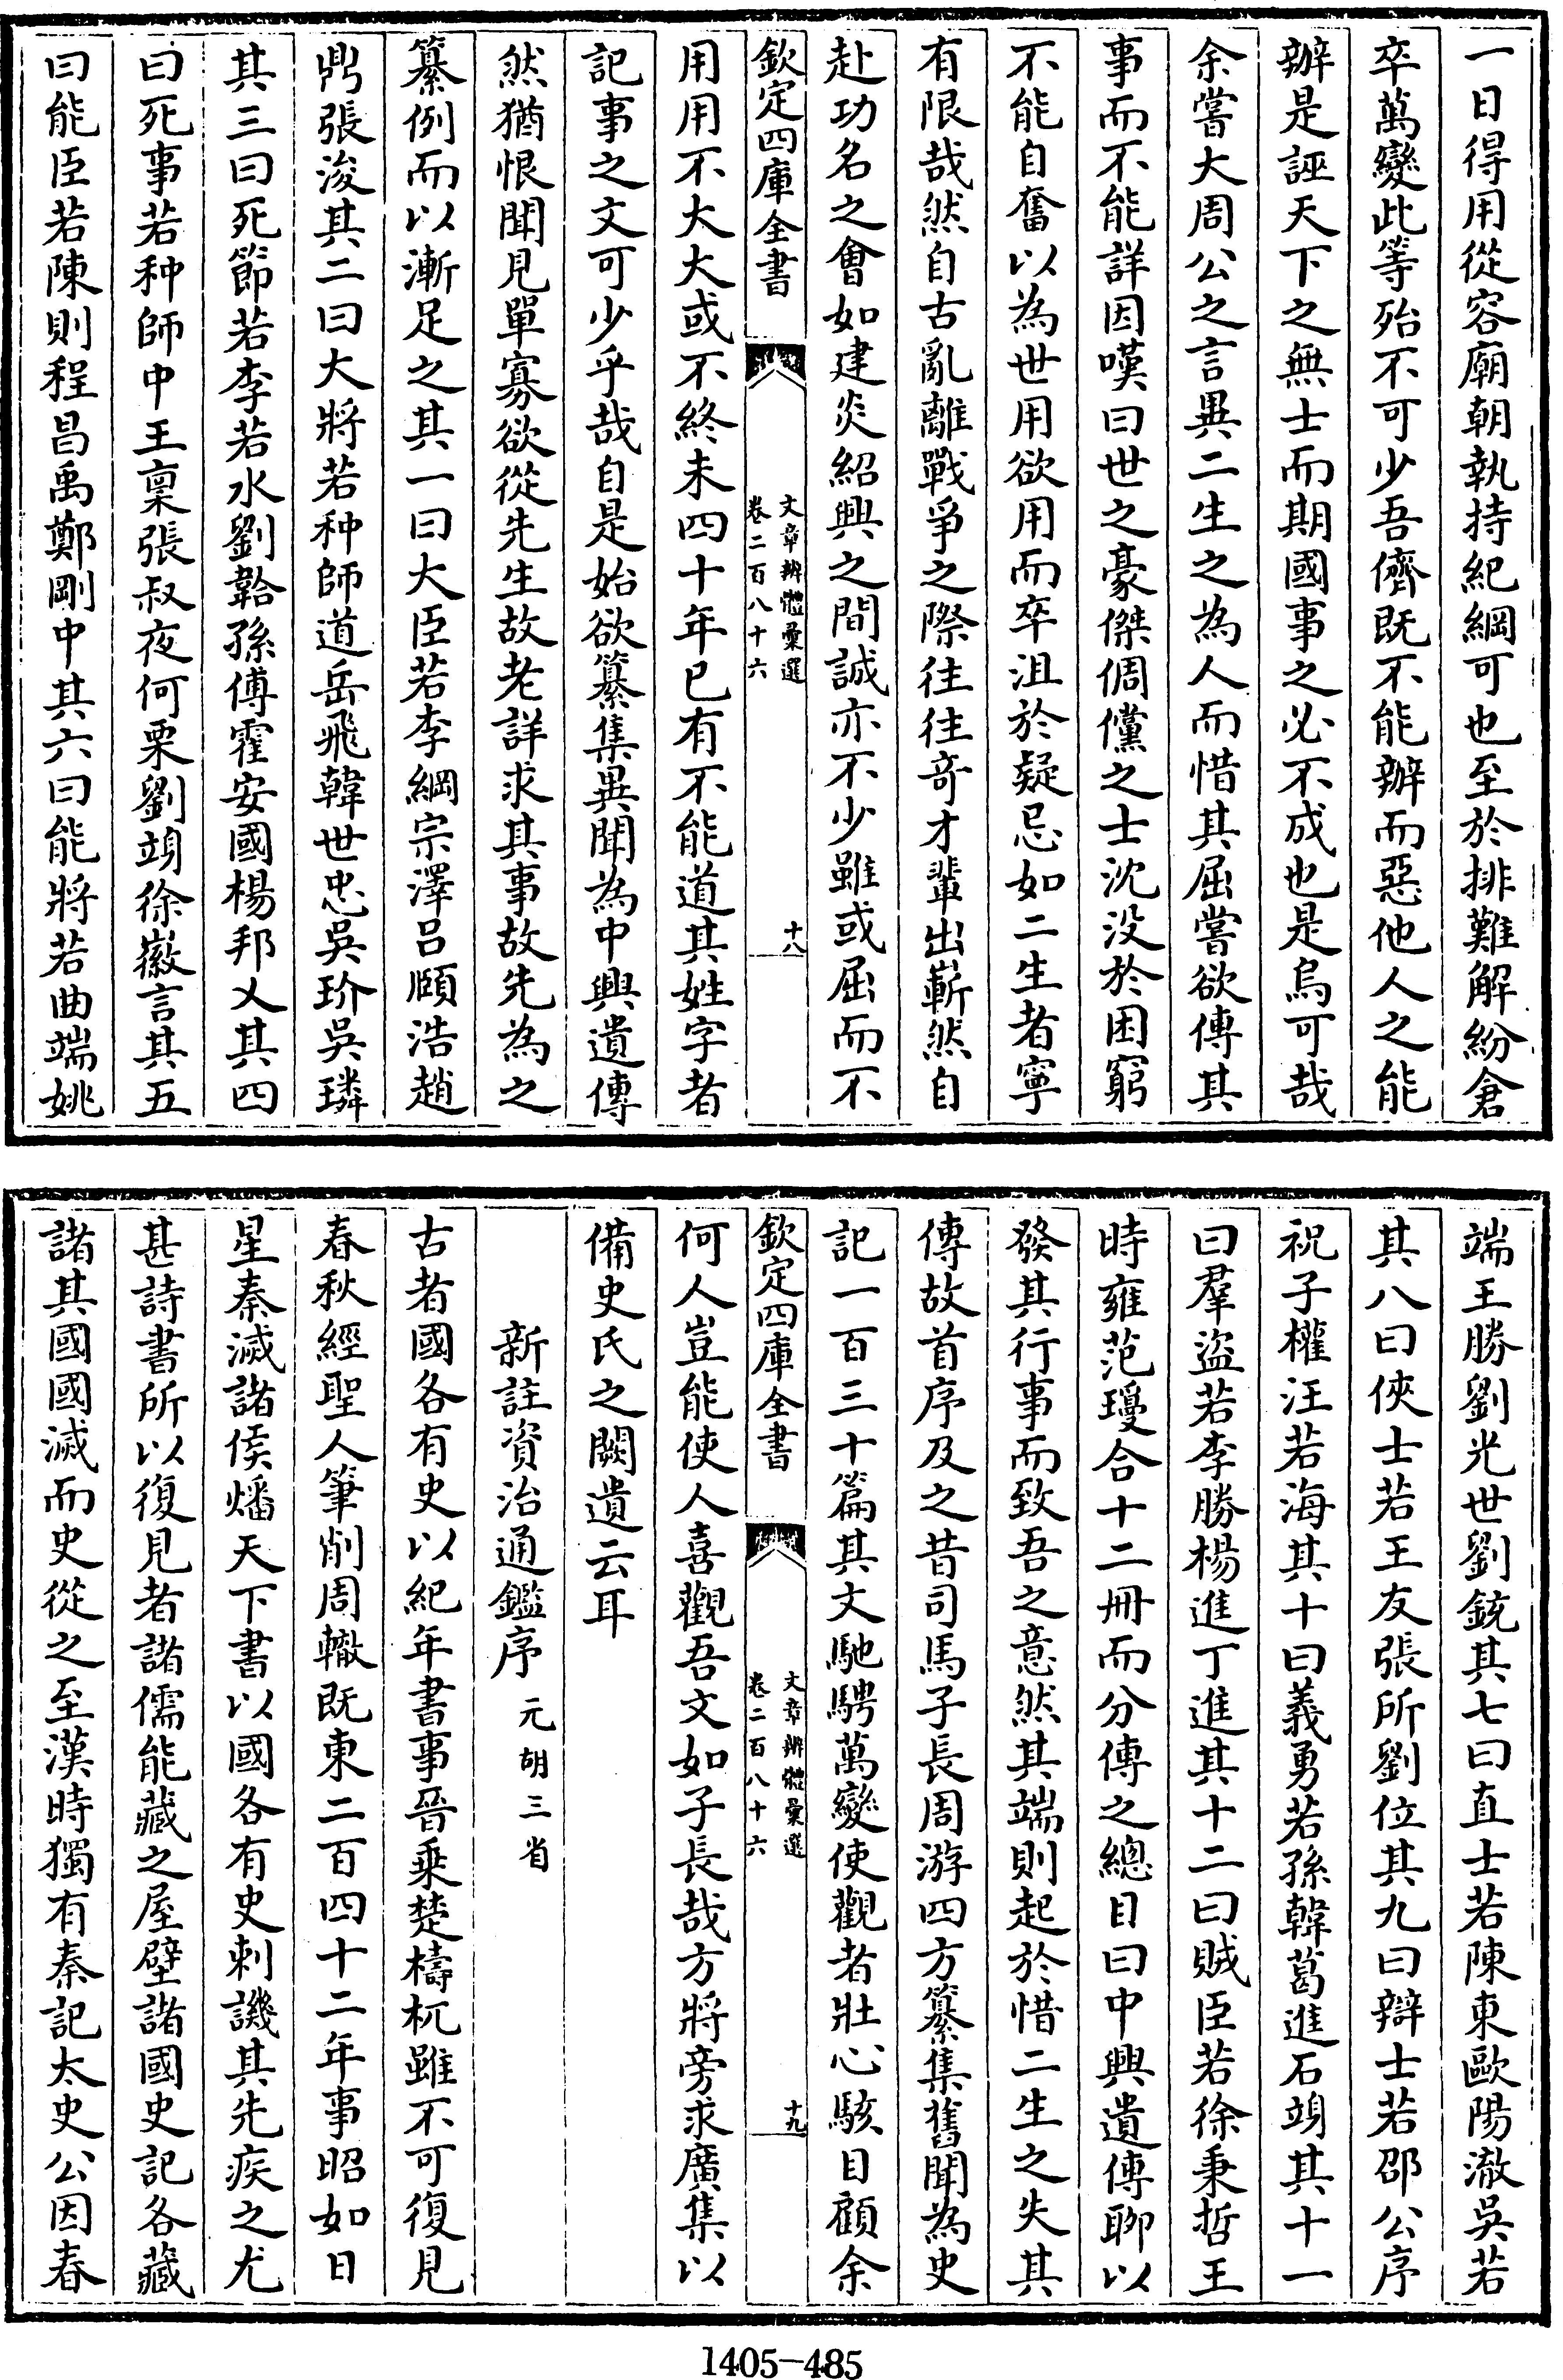 一日得用從容廟朝執持紀綱可也至於排難解紛倉
卒萬變此等殆不可少吾儕既不能辦而惡他人之能
辦是誣天下之無士而期國事之必不成也是烏可哉
余嘗大周公之言異二生之為人而惜其屈嘗欲傳其
事而不能詳因嘆曰世之豪傑倜儻之士沈没於困窮
不能自奮以為世用欲用而卒沮於疑忌如二生者寧
有限哉然自古亂離戰爭之際往往奇才輩出嶄然自
赴功名之會如建炎紹興之間誠亦不少雖或屈而不
欽定四庫全書
文章辨體彙選
卷二百八十六
十八
用用不大大或不終未四十年已有不能道其姓字者
記事之文可少乎哉自是始欲纂集異聞為中興遺傳
然猶恨聞見單寡欲從先生故老詳求其事故先為之
纂例而以漸足之其一曰大臣若李綱宗澤呂頤浩趙
鼎張浚其二曰大將若种師道岳飛韓世忠吳玠吳璘
其三曰死節若李若水劉韐孫傅霍安國楊邦乂其四
曰死事若种師中王稟張叔夜何㮚劉竧徐徽言其五
曰能臣若陳則程昌禹鄭剛中其六曰能將若曲端姚
端王勝劉光世劉銳其七曰直士若陳東歐陽澈吳若
其八曰俠士若王友張所劉位其九曰辯士若邵公序
祝子權汪若海其十曰義勇若孫韓葛進石竧其十一
曰羣盜若李勝楊進丁進其十二曰賊臣若徐秉哲王
時雍范瓊合十二冊而分傳之總目曰中興遺傳聊以
發其行事而致吾之意然其端則起於惜二生之失其
傳故首序及之昔司馬子長周游四方纂集舊聞為史
記一百三十篇其文馳騁萬變使觀者壯心駭目顧余
欽定四庫全書
文章辨體彙選
卷二百八十六
十九
何人豈能使人喜觀吾文如子長哉方將旁求廣集以
備史氏之闕遺云耳
新註資治通鑑序 元胡三省
古者國各有史以紀年書事晉乗楚檮杌雖不可復見
春秋經聖人筆削周轍既東二百四十二年事昭如日
星秦滅諸侯燔天下書以國各有史刺譏其先疾之尤
甚詩書所以復見者諸儒能藏之屋壁諸國史記各藏
諸其國國滅而史從之至漢時獨有秦記太史公因春
1405-485